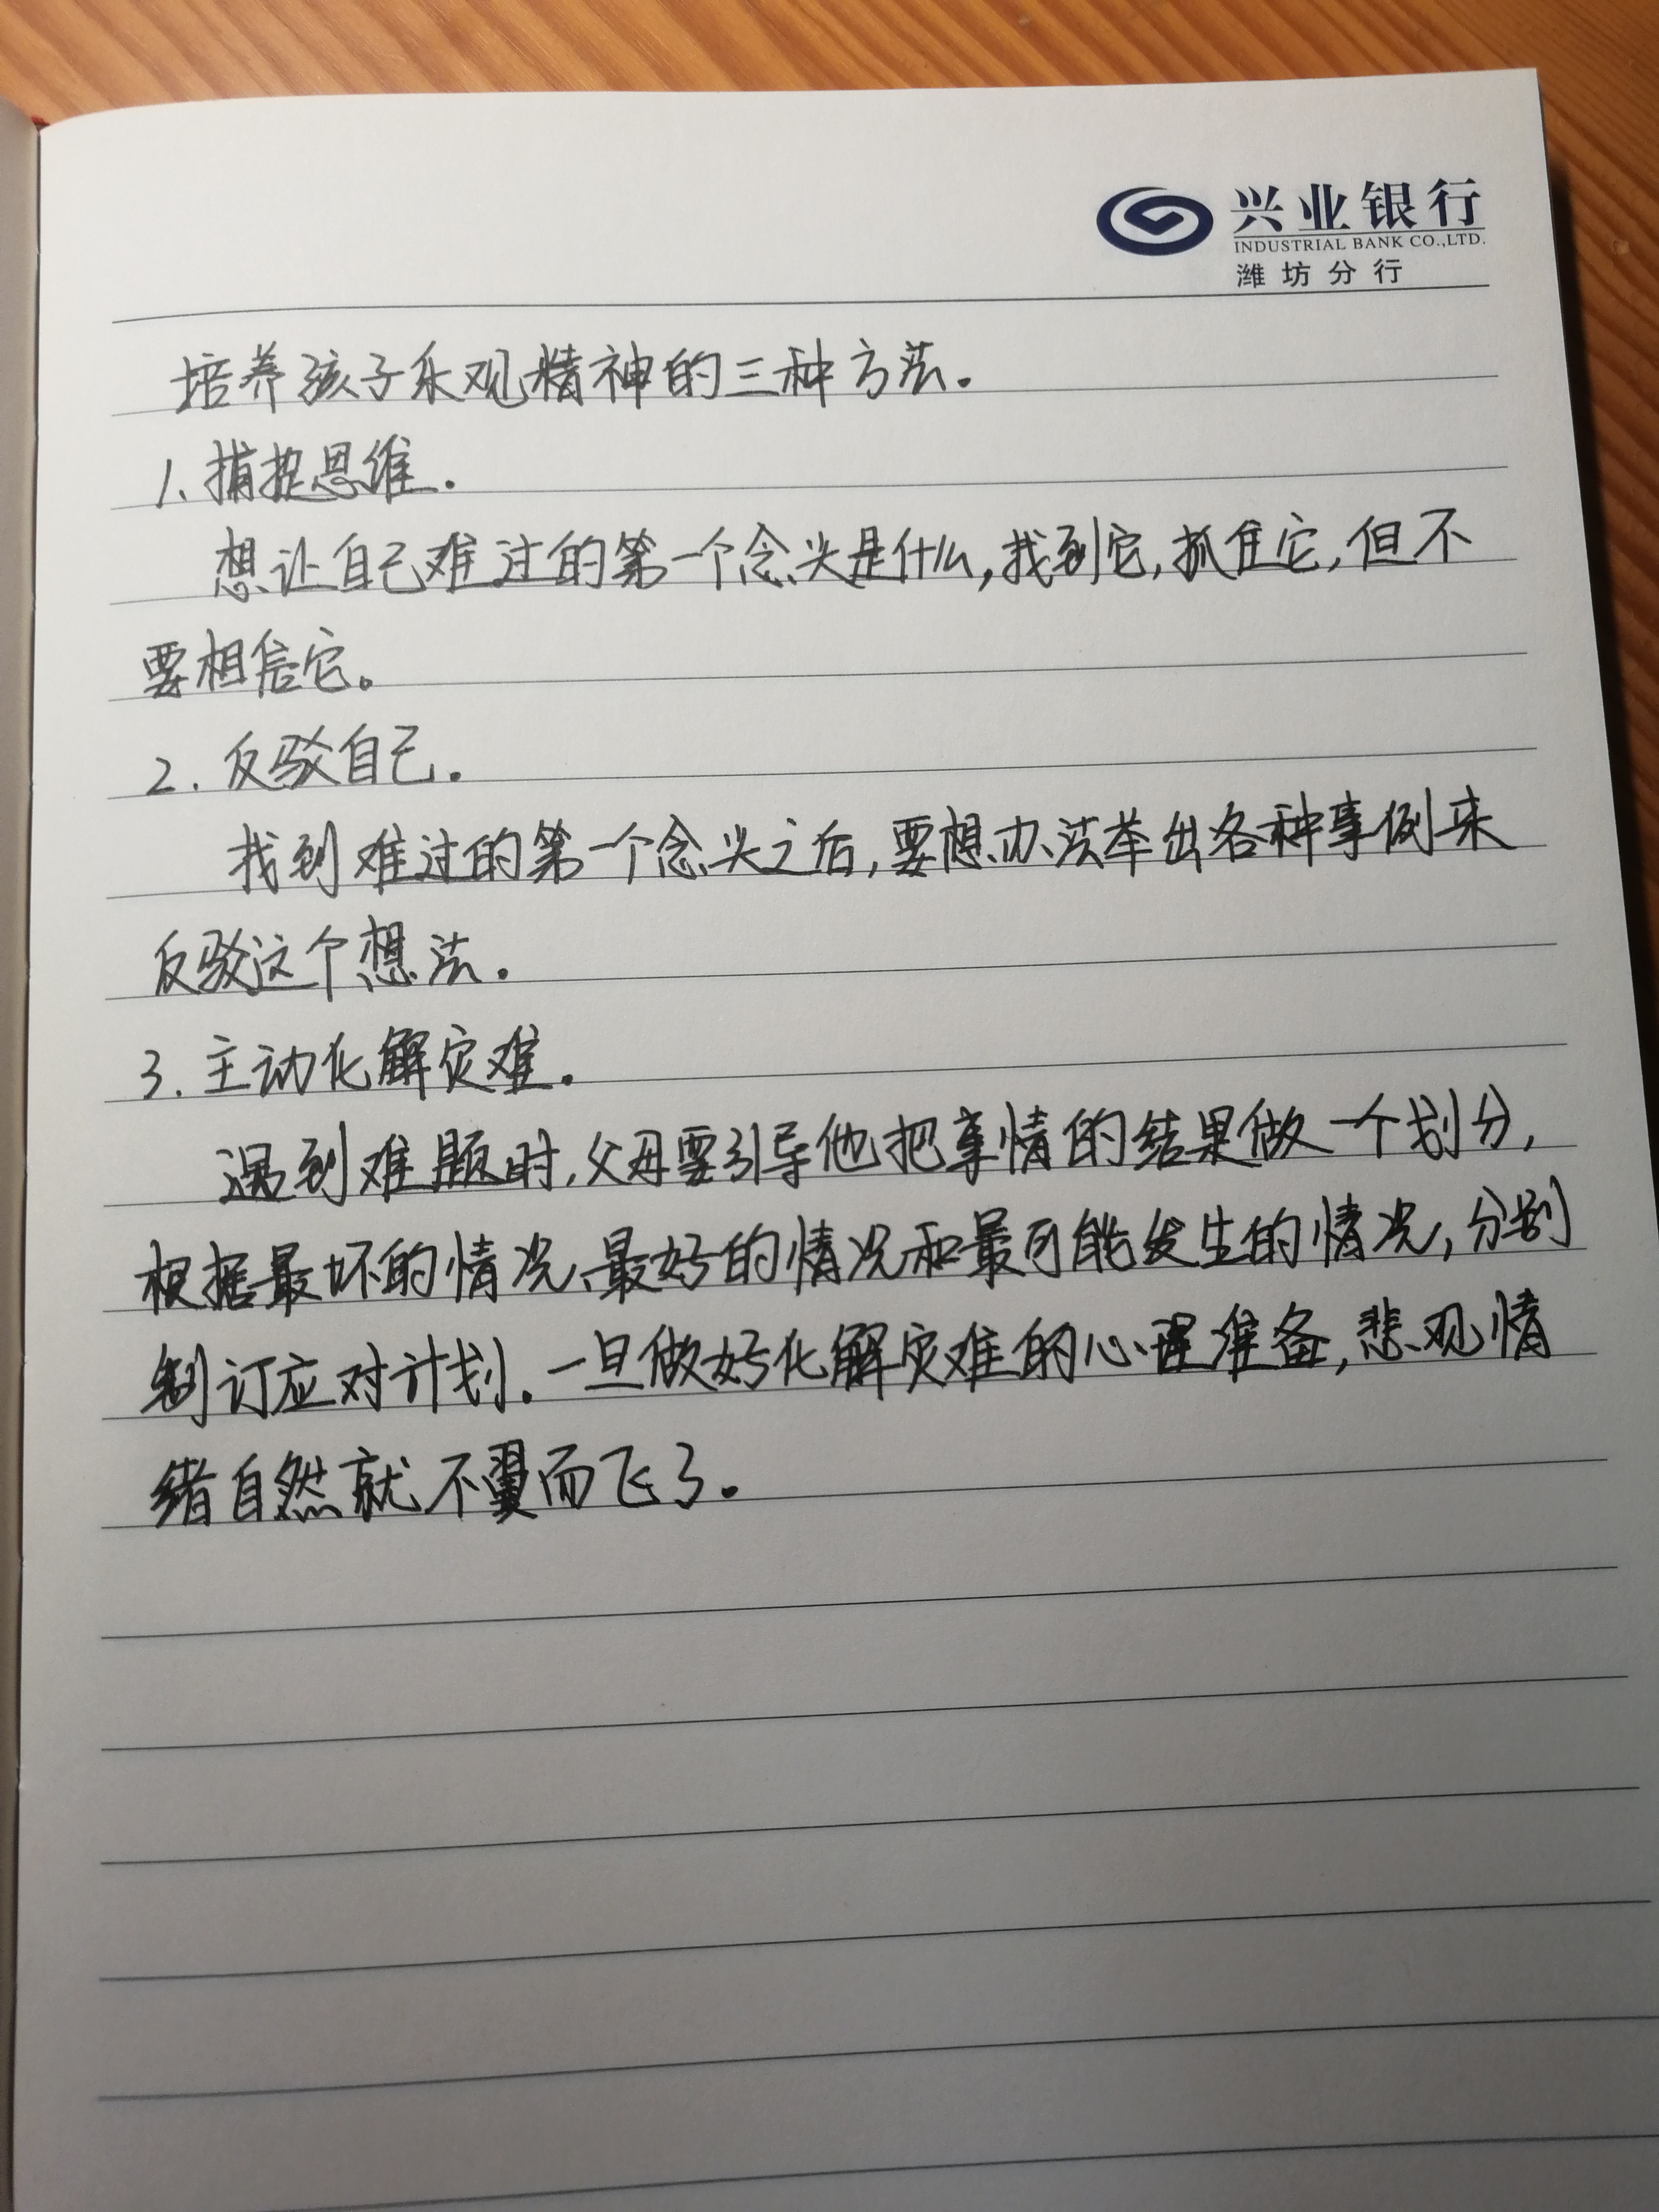 兴业银行
INDUSTRIAL BANK CO.,LTD.
潍坊分行
培养孩子乐观精神的三种方法.
1、捕捉思维.
想让自己难过的第一个念头是什么,找到它,抓住它,但不
要相信它。
2.反驳自己.
找到难过的第一个念头之后,要想办法举出各种事例来
反驳这个想法.
3.主动化解灾难.
遇到难题时,父母要引导他把事情的结果做一个划分,
根据最坏的情况、最好的情况和最可能发生的情况,分别
制订应对计划.一旦做好化解灾难的心理准备,悲观情
绪自然就不翼而飞了.